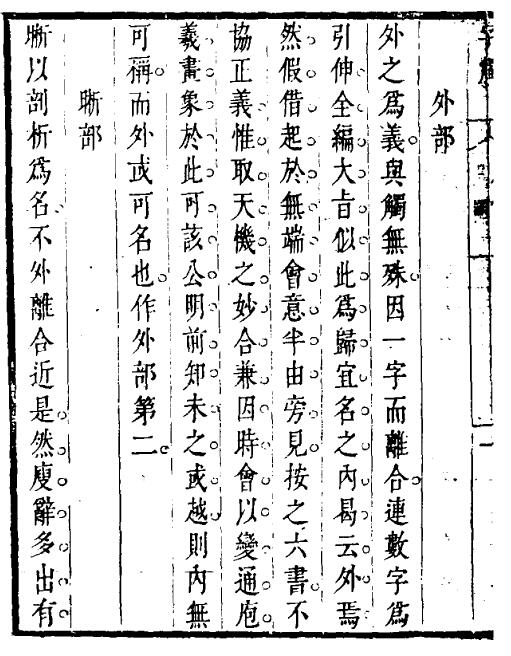 外部
外之爲義與觸無殊因一字而離合連數字爲
引伸全編大旨似此爲歸宜名之內曷云外焉
然假借起於無端會意半由旁見按之六書不
協正義惟取天機之妙合兼因時會以變通庖
羲畫象於此可該公明前知未之或越則內無
可稱而外或可名也作外部第二
晰部
晰以剖析爲名不外離合近是然廋辭多出有